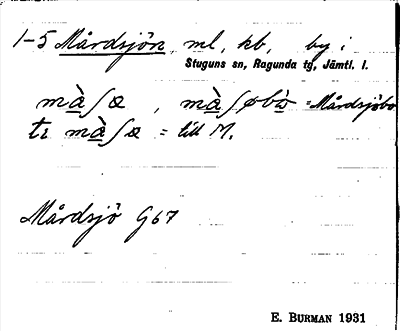 1-5 Mårdsjön, ml, kb, by i
Stuguns sn, Ragunda tg, Jämtl. l.
mὰʃæ , mὰʃøbὼ = Mårdsjöbo
tɪ mὰʃæ = till M.
Mårdsjö G67
E. BURMAN 1931